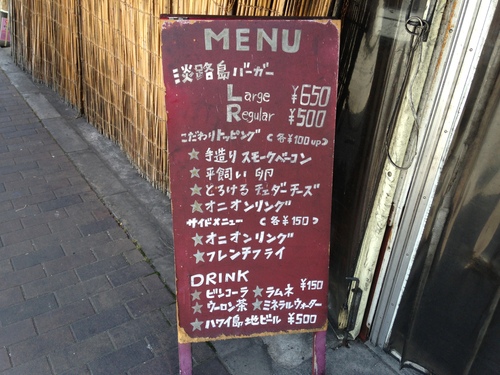 MENU
淡路島バーガー
Large ¥650
Regular ¥500
こだわりトッピング (各¥100up)
★手造りスモークベーコン
★平飼い卵
★とろけるチェダーチーズ
★オニオンリング
サイドメニュー (各¥150)
★オニオンリング
★フレンチフライ
DRINK
★ビンコーラ ★ラムネ ¥150
★ウーロン茶 ★ミネラルウォーター
★ハワイ島地ビール ¥500